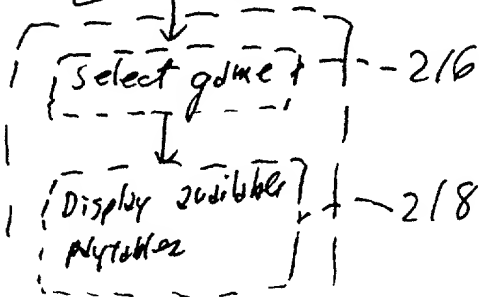 Select game
216
Display available
218
Paytables